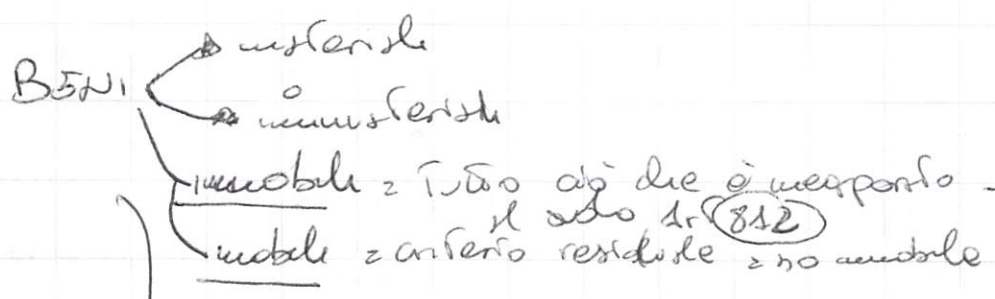 materiali
BENI
o
immateriali
immobili = Tutto ciò che è incorporato
al suolo Art 812
mobili = criterio residuale = no immobile